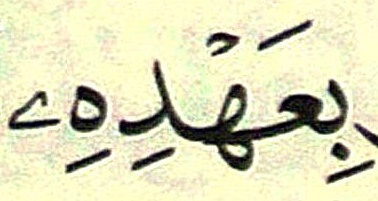 بِعَهْدِهِۦ